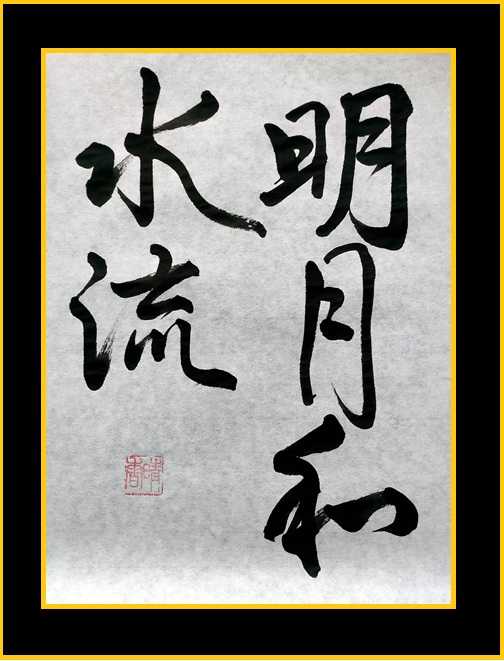 明月和
水流